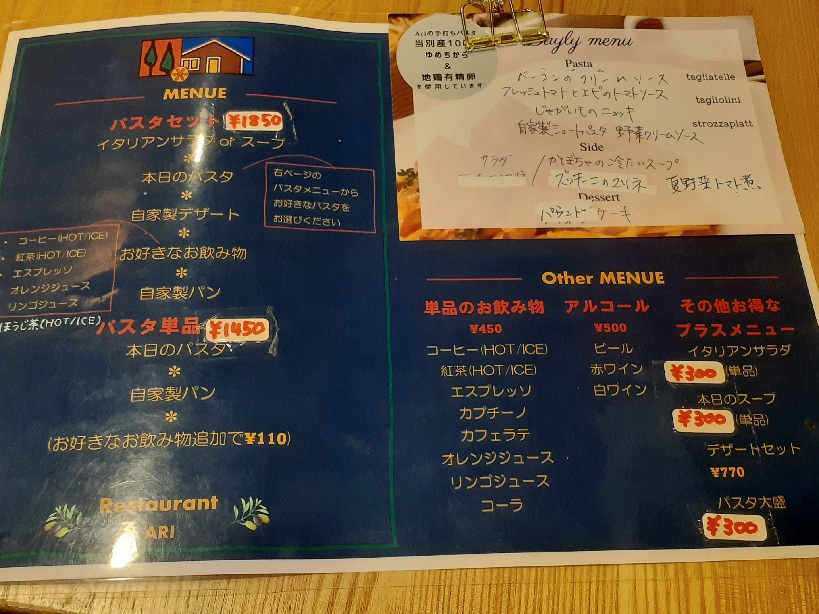 MENUE
パスタセット ¥1850
イタリアンサラダ or スープ
✻
本日のパスタ
✻
自家製デザート
✻
お好きなお飲み物
✻
自家製パン
右ページの
パスタメニューから
お好きなパスタを
お選びください
・ コーヒー(HOT/ICE)
・ 紅茶(HOT/ICE)
・ エスプレッソ
オレンジジュース
リンゴジュース
ほうじ茶(HOT/ICE)
パスタ単品 ¥1450
本日のパスタ
✻
自家製パン
✻
(お好きなお飲み物追加で¥110)
Restaurant
ARI
Ariの手打ちパスタ
当別産100
ゆめちから
&
地鶏有精卵
を使用しています
Dayly menu
Pasta
ベーコンのクリームソース tagliatelle
フレッシュトマトとエビのトマトソース tagliolini
じゃがいものニョッキ
自家製ショートパスタ 野菜クリームソース strozzapiatt
Side
サラダ / かぼちゃの冷たいスープ
ズッキーニのマリネ 夏野菜トマト煮
Dessert
パウンドケーキ
Other MENUE
単品のお飲み物
¥450
コーヒー(HOT/ICE)
紅茶(HOT/ICE)
エスプレッソ
カプチーノ
カフェラテ
オレンジジュース
リンゴジュース
コーラ
アルコール
¥500
ビール
赤ワイン
白ワイン
その他お得な
プラスメニュー
イタリアンサラダ
¥300 (単品)
本日のスープ
¥300 (単品)
デザートセット
¥770
パスタ大盛
¥300